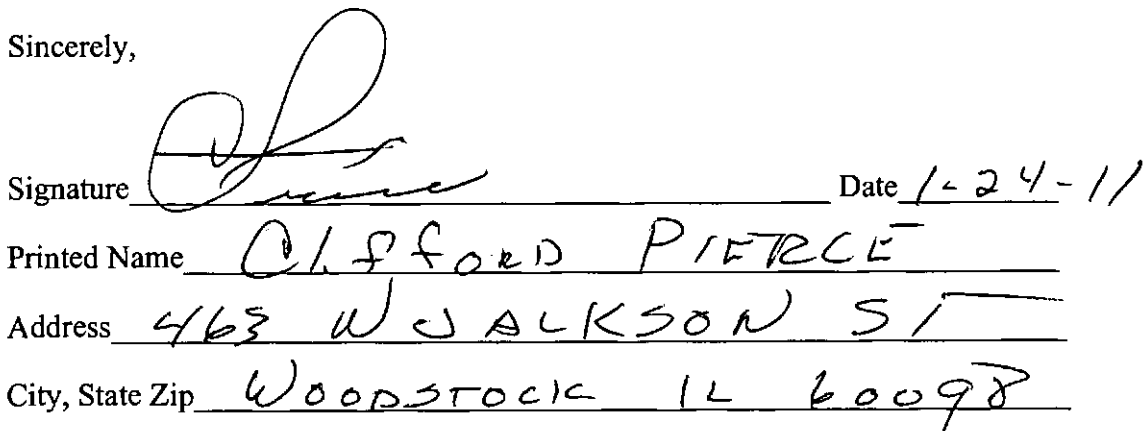 Sincerely,
Signature Date 1-24-11
Printed Name Clifford PIERCE
Address 463 W JACKSON ST
City, State Zip WOODSTOCK IL 60098